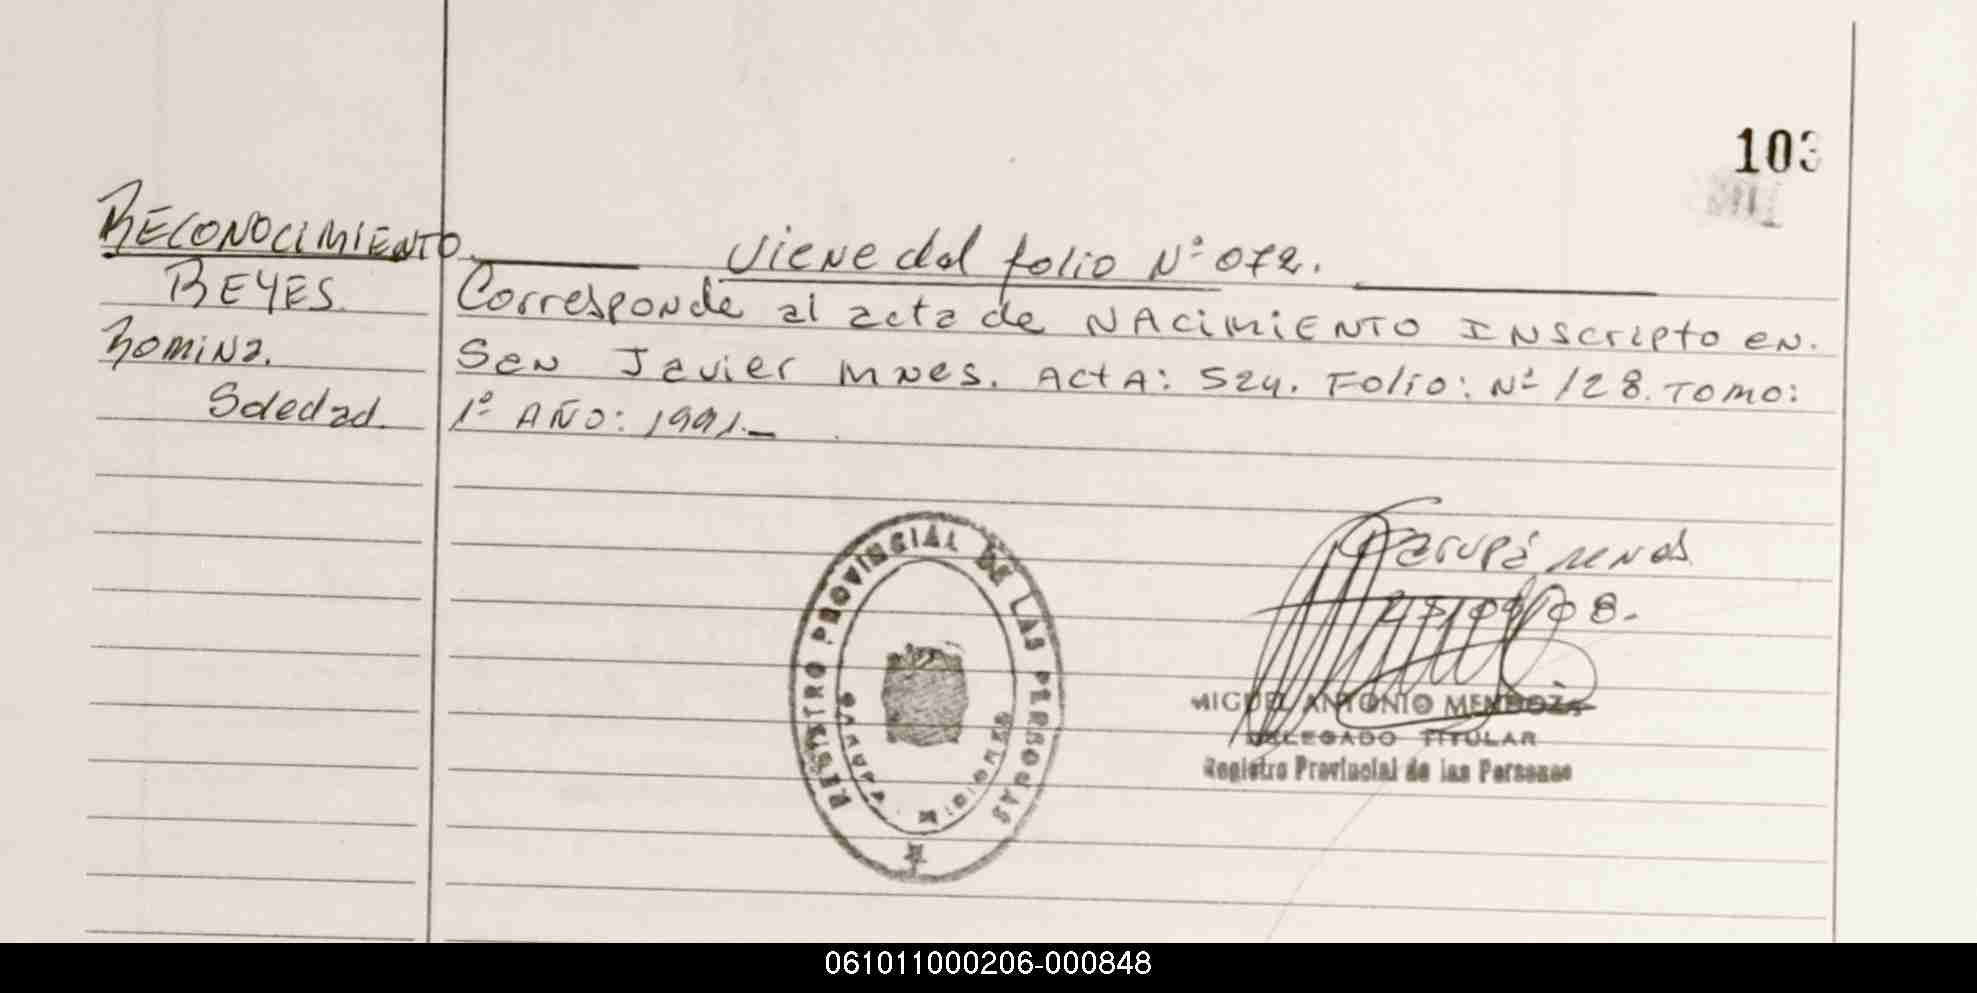 103
RECONOCIMIENTO
Viene del folio Nº 072.
REYES
Corresponde al acta de NACIMIENTO INScripto en.
Romina.
San Javier Mnes. ActA: 524. Folio: Nº 128. Tomo:
Soledad.
1º AÑO: 1991.-
REGISTRO PROVINCIAL DE LAS PERSONAS
GARUPA - MISIONES
Garupá
MIGUEL ANTONIO MENDOZA
DELEGADO TITULAR
Registro Provincial de las Personas
061011000206-000848